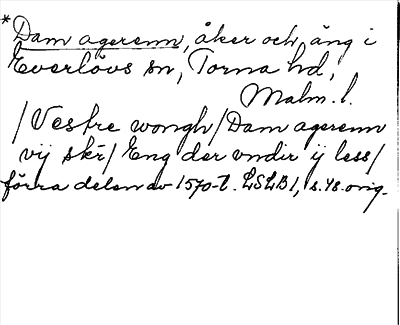 *Dam agerenn, åker och äng i
Everlövs sn, Torna hd,
Malm. l.
/Vestre wongh/Dam agerenn
vij skr̄/Eng der vndir ij less/
förra delen av 1570-t. LSLB1, s. 48. orig.